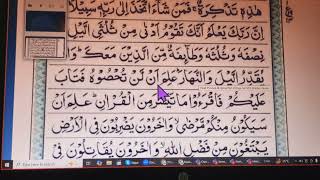 هٰذِهٖ تَذْكِرَةٌ ۚ فَمَنْ شَآءَ اتَّخَذَ اِلٰى رَبِّهٖ سَبِيْلًا
اِنَّ رَبَّكَ يَعْلَمُ اَنَّكَ تَقُوْمُ اَدْنٰى مِنْ ثُلُثَىِ الَّيْلِ
نِصْفَهٗ وَثُلُثَهٗ وَطَآئِفَةٌ مِّنَ الَّذِيْنَ مَعَكَ ۚ وَ
يُقَدِّرُ الَّيْلَ وَالنَّهَارَ ۚ عَلِمَ اَنْ لَّنْ تُحْصُوْهُ فَتَابَ
عَلَيْكُمْ فَاقْرَءُوْا مَا تَيَسَّرَ مِنَ الْقُرْاٰنِ ۚ عَلِمَ اَنْ
سَيَكُوْنُ مِنْكُمْ مَّرْضٰى ۙ وَاٰخَرُوْنَ يَضْرِبُوْنَ فِى الْاَرْضِ
يَبْتَغُوْنَ مِنْ فَضْلِ اللّٰهِ ۙ وَاٰخَرُوْنَ يُقَاتِلُوْنَ فِىْ